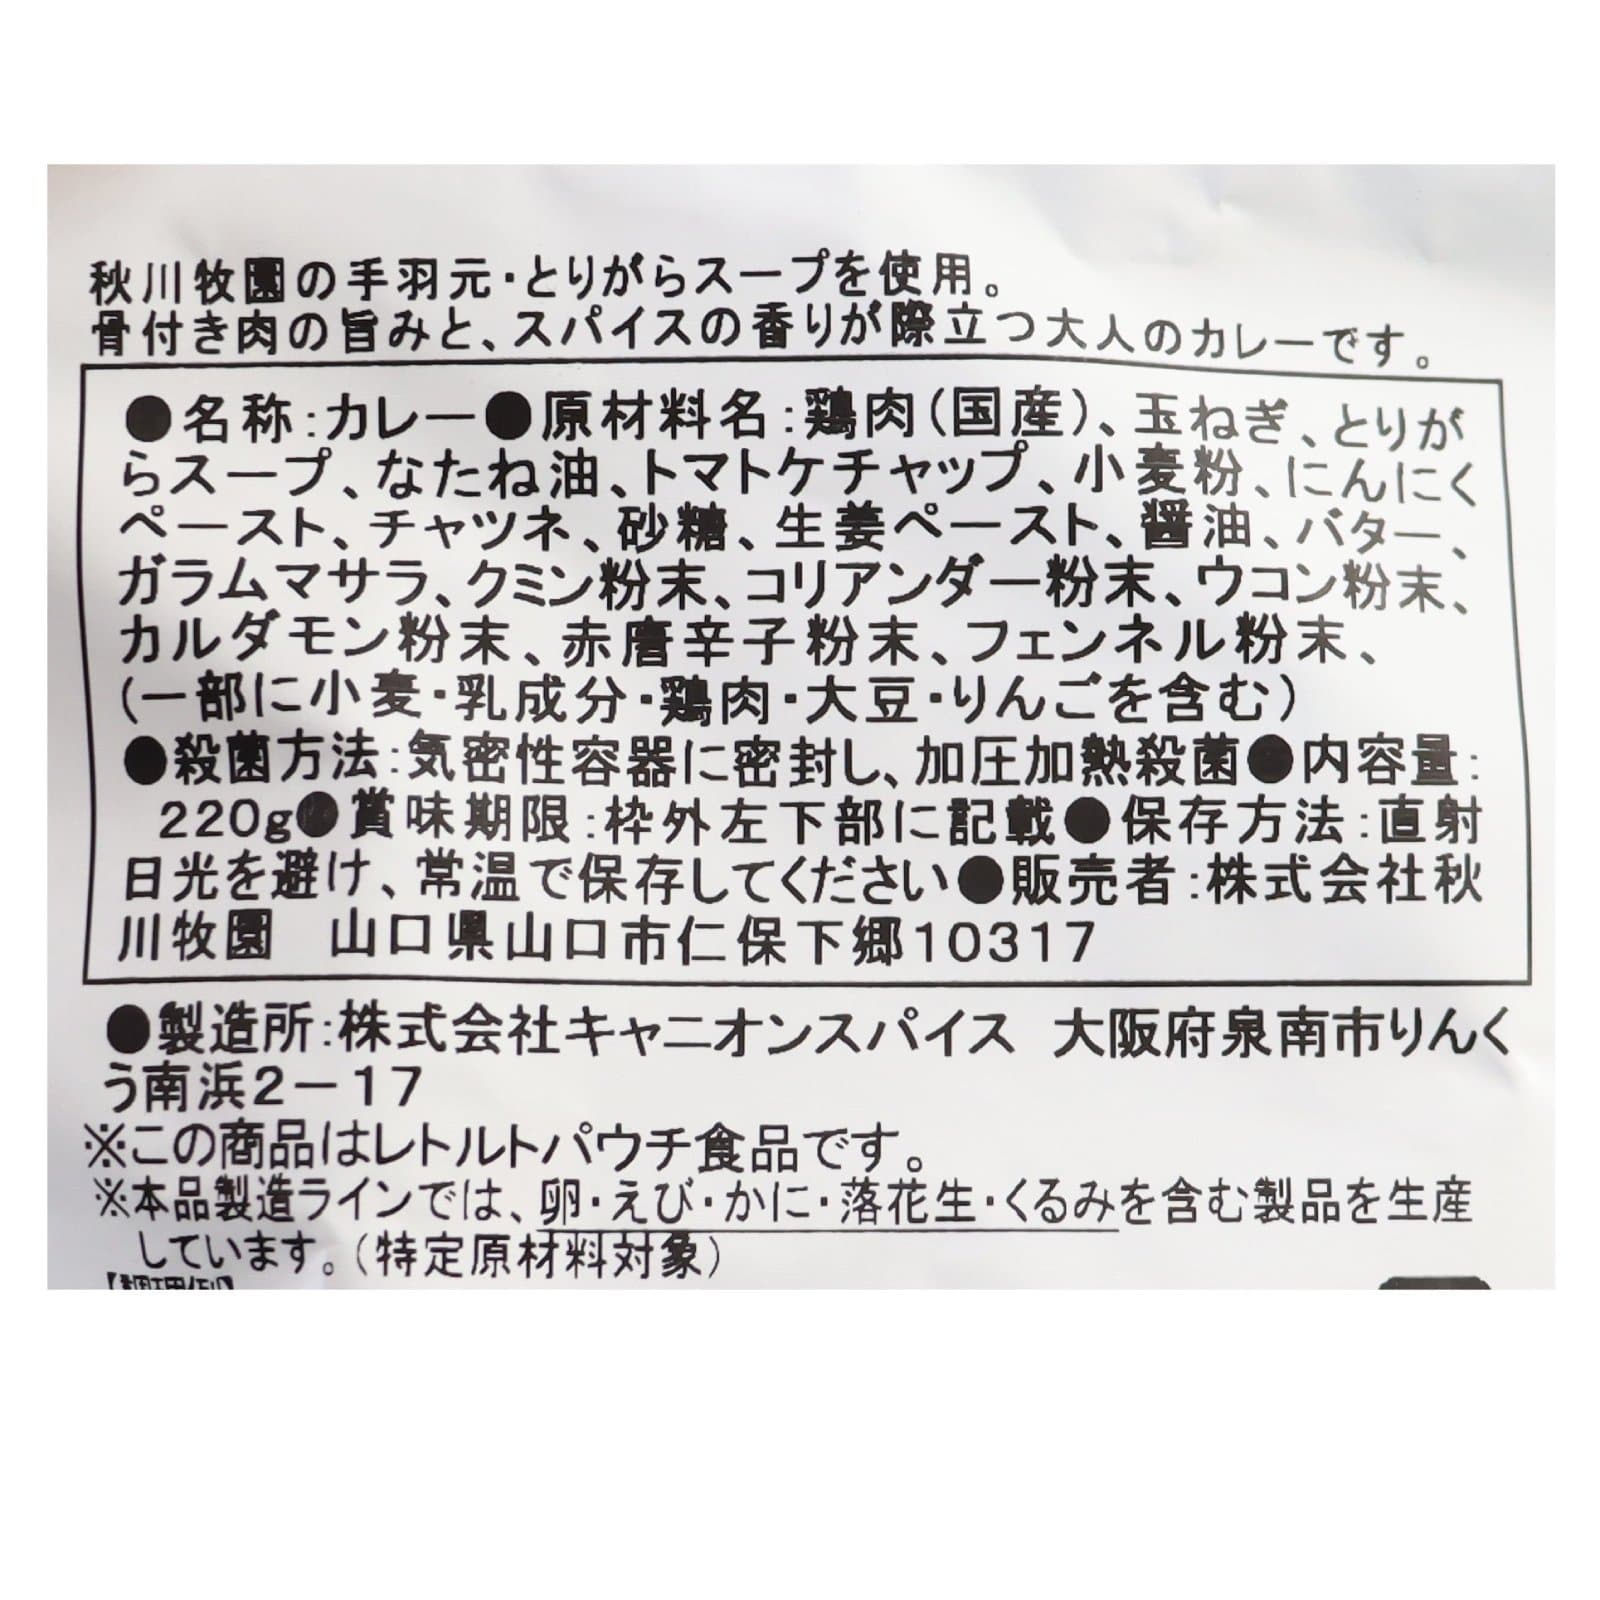 秋川牧園の手羽元・とりがらスープを使用。
骨付き肉の旨みと、スパイスの香りが際立つ大人のカレーです。
●名称:カレー●原材料名:鶏肉(国産)、玉ねぎ、とりが
らスープ、なたね油、トマトケチャップ、小麦粉、にんにく
ペースト、チャツネ、砂糖、生姜ペースト、醤油、バター、
ガラムマサラ、クミン粉末、コリアンダー粉末、ウコン粉末、
カルダモン粉末、赤唐辛子粉末、フェンネル粉末、
(一部に小麦・乳成分・鶏肉・大豆・りんごを含む)
●殺菌方法:気密性容器に密封し、加圧加熱殺菌●内容量:
220g●賞味期限:枠外左下部に記載●保存方法:直射
日光を避け、常温で保存してください●販売者:株式会社秋
川牧園 山口県山口市仁保下郷10317
●製造所:株式会社キャニオンスパイス 大阪府泉南市りんく
う南浜2-17
※この商品はレトルトパウチ食品です。
※本品製造ラインでは、卵・えび・かに・落花生・くるみを含む製品を生産
しています。(特定原材料対象)